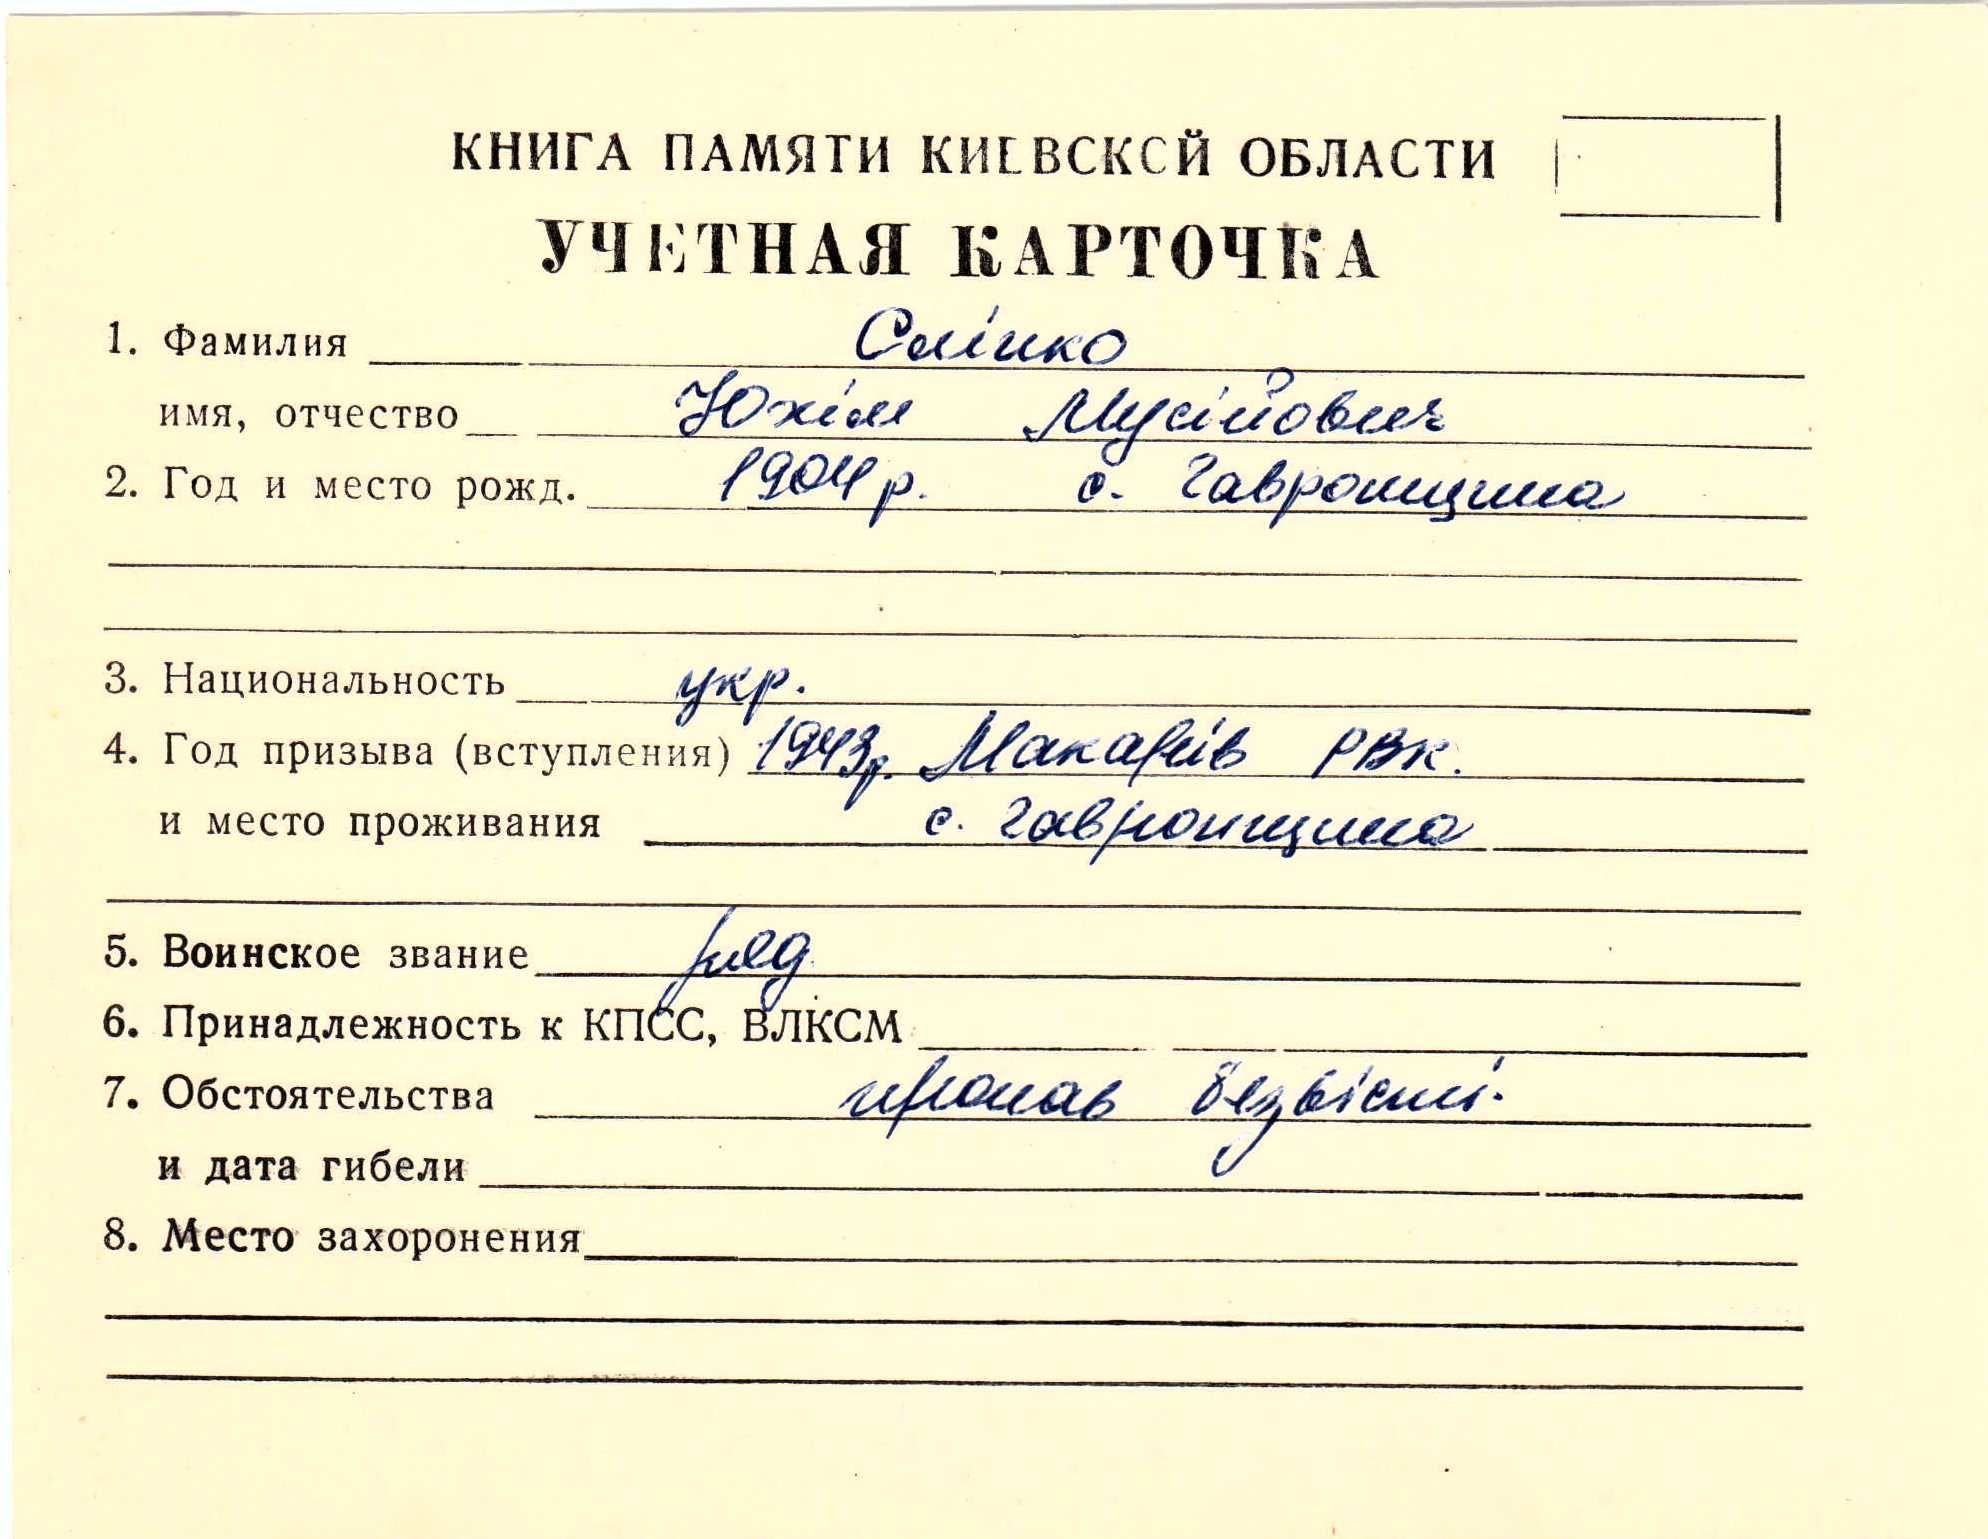 КНИГА ПАМЯТИ КИЕВСКОЙ ОБЛАСТИ
УЧЕТНАЯ КАРТОЧКА
1. Фамилия Сліпко
имя, отчество Юхім Мусійович
2. Год и место рожд. 1904 р. с. Гавронщина
3. Национальность укр.
4. Год призыва (вступления) 1943р. Макарів РВК.
и место проживания с. Гавронщина
5. Воинское звание ряд.
6. Принадлежность к КПСС, ВЛКСМ
7. Обстоятельства пропав безвісті.
и дата гибели
8. Место захоронения